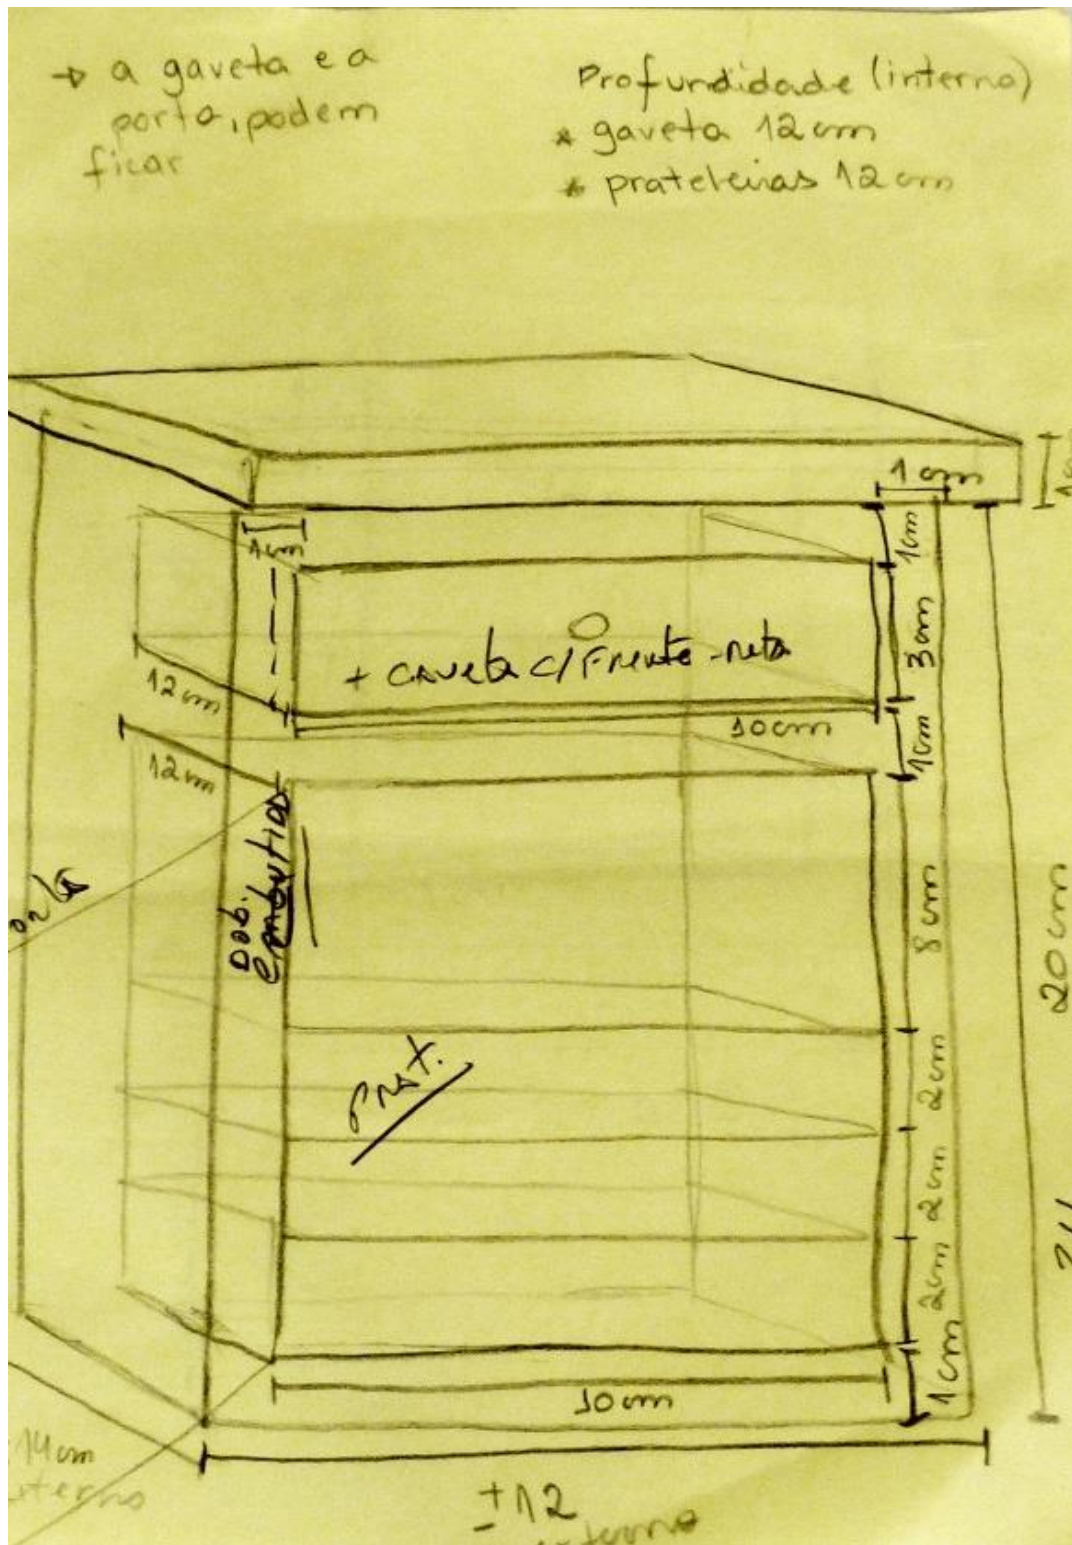 → a gaveta e a
porta, podem
ficar
Profundidade (interno)
* gaveta 12 cm
* prateleiras 12 cm
1 cm
1cm
1cm
3cm
+ Gaveta c/ Frente reta
12cm
10cm
1cm
12cm
Dob.
Embutida
8cm
20cm
Prat.
2cm
2cm
2cm
1cm
10cm
14cm
±12